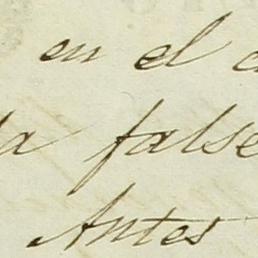 en el
false
Antes